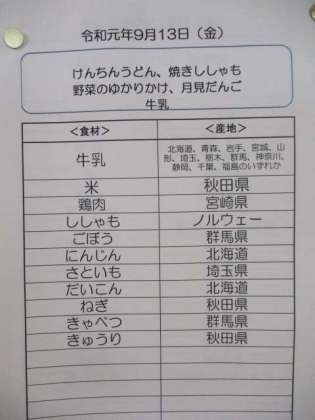 令和元年9月13日（金）
けんちんうどん、焼きししゃも
野菜のゆかりかけ、月見だんご
牛乳
＜食材＞ ＜産地＞
牛乳 北海道、青森、岩手、宮城、山
形、埼玉、栃木、群馬、神奈川、
静岡、千葉、福島のいずれか
米 秋田県
鶏肉 宮崎県
ししゃも ノルウェー
ごぼう 群馬県
にんじん 北海道
さといも 埼玉県
だいこん 北海道
ねぎ 秋田県
きゃべつ 群馬県
きゅうり 秋田県